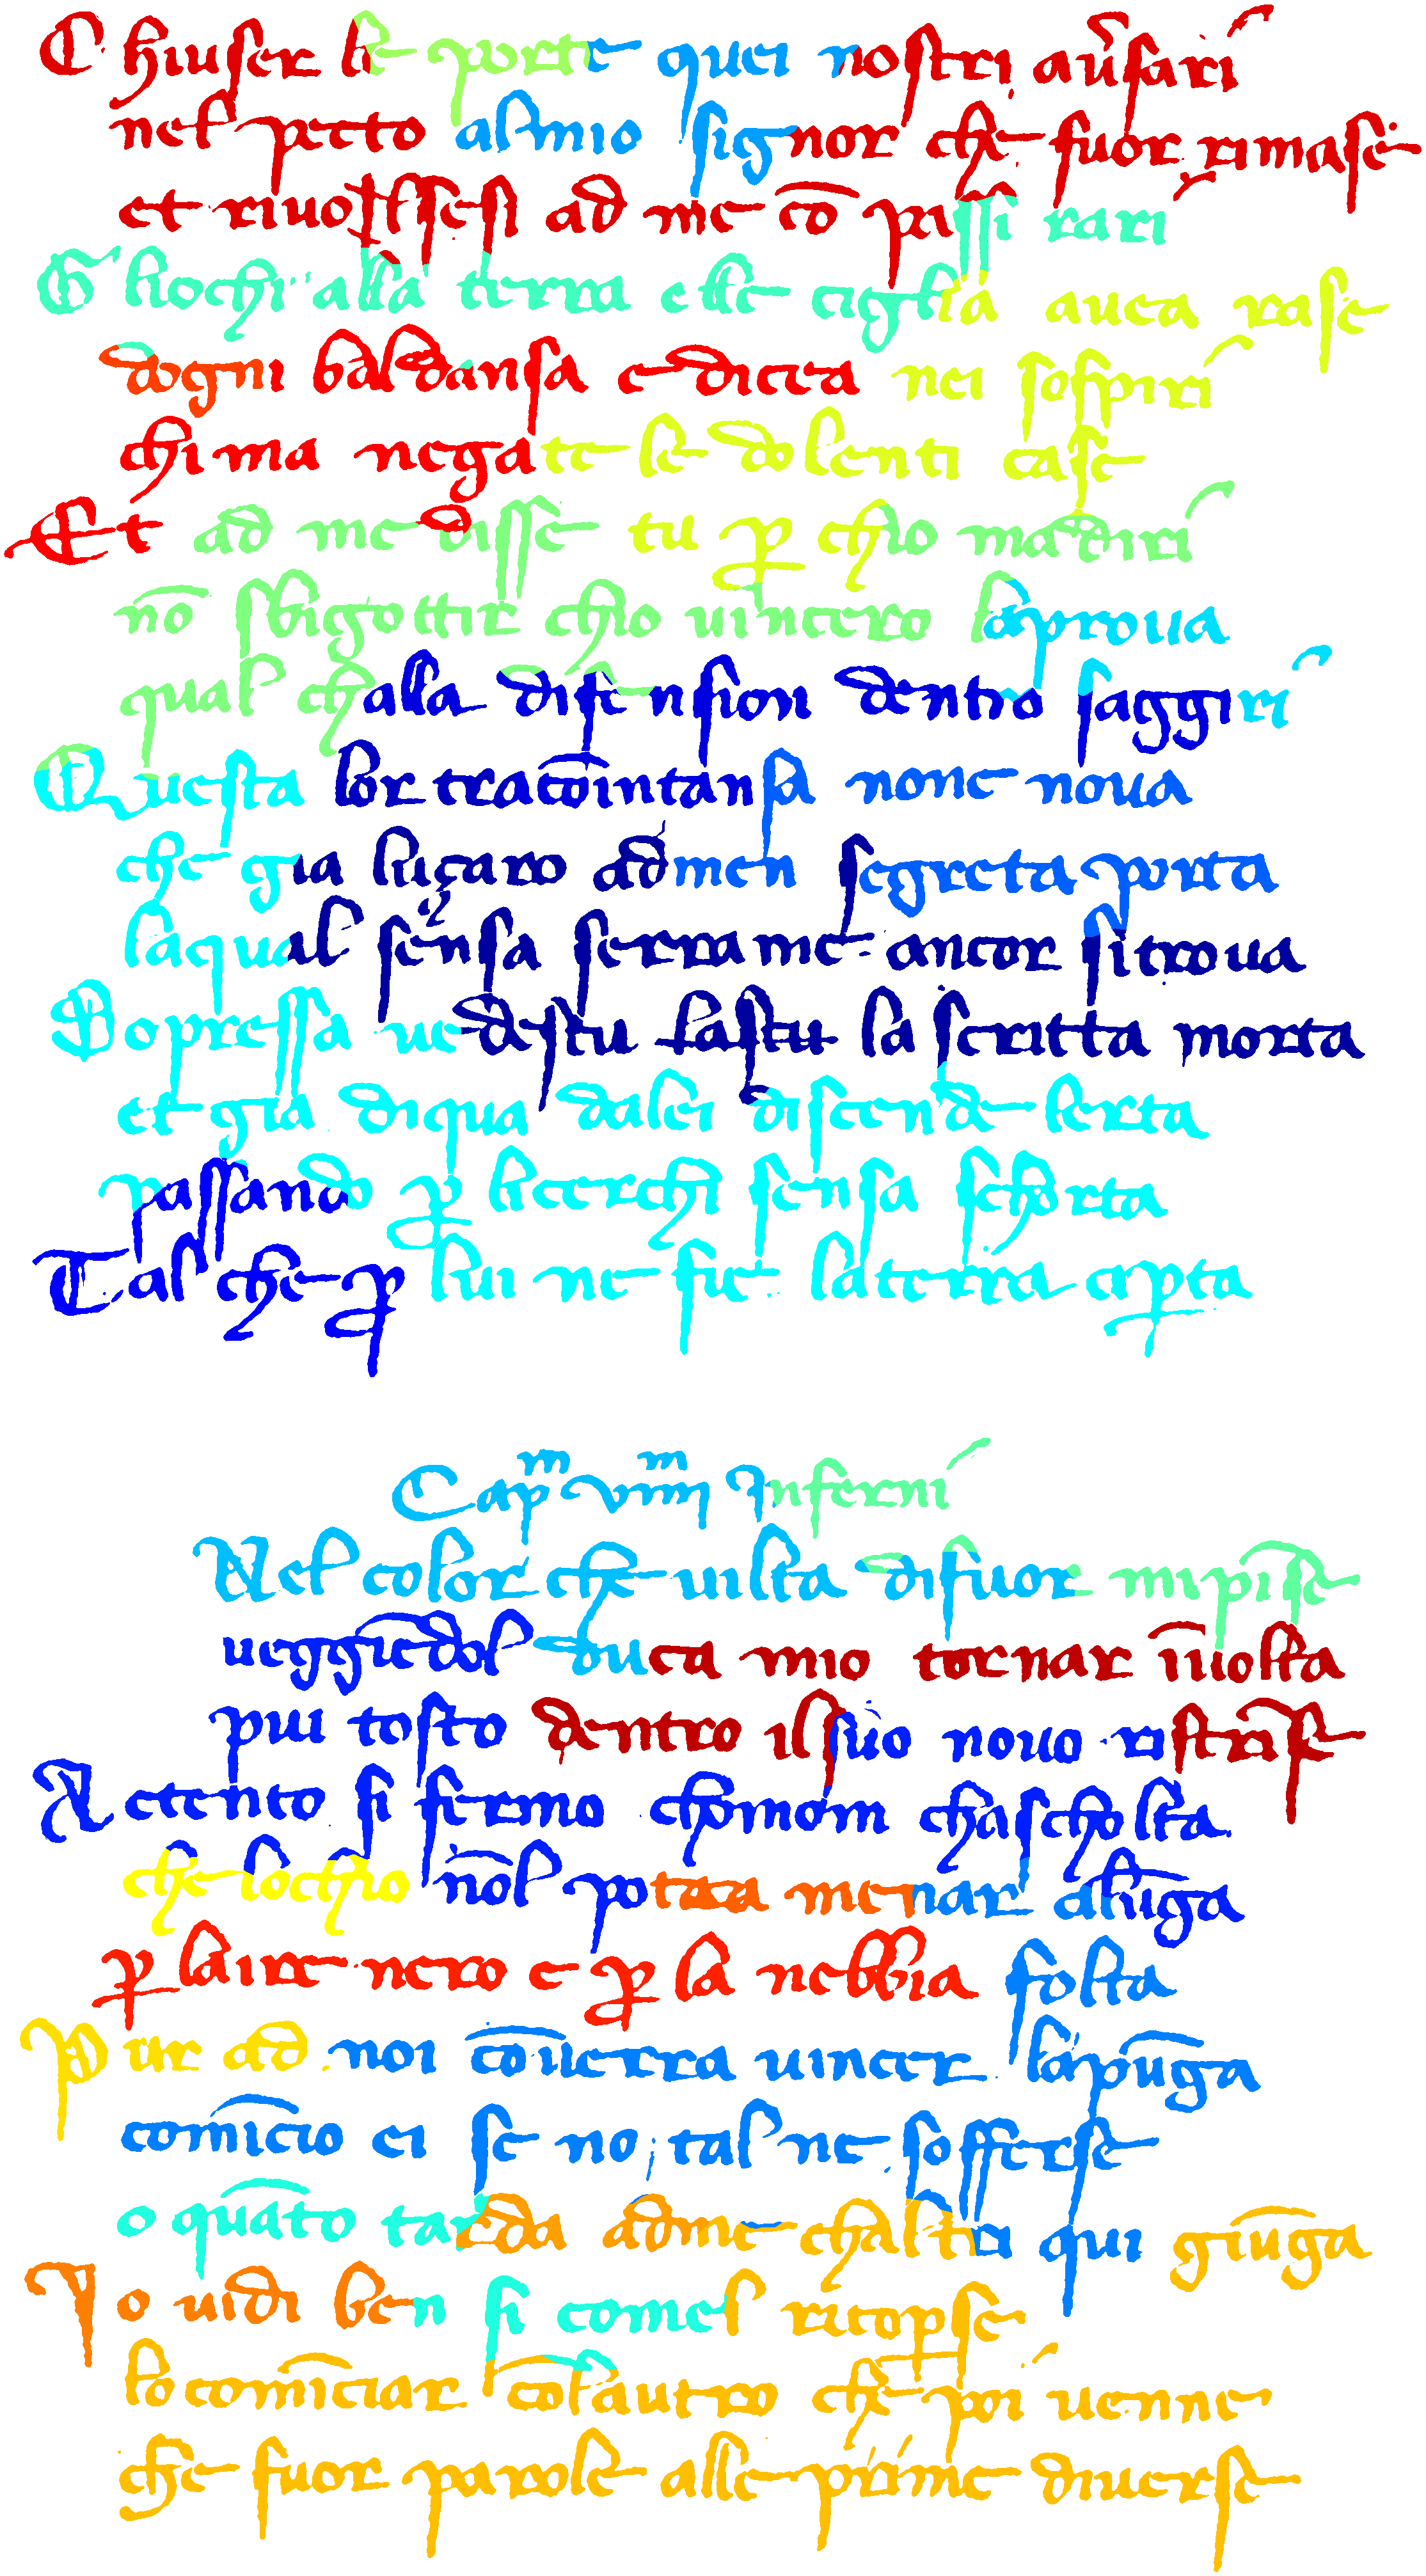 Chiuser le porte quei nostri au̅sari
nel pecto al mio signor che fuor rimase
et riuolsesi ad me co̅ passi rari
Gliochi alla terra elle ciglia auea rase
dogni baldansa e dicea nei sospiri
chi ma negate le dolenti case
Et ad me disse tu ꝑ chio madiri
no̅ sbigottir chio uincero laproua
qual challa difension dentro saggiri
Questa lor tracointansa none noua
che gia luçaro admen segreta porta
laqual sensa serrame ancor si troua
Sopressa uedestu la scritta morta
et gia diqua dalei discende lerta
passando ꝑ li cerchi sensa schorta
Tal che ꝑ lui ne fie la terra aꝑta
Capm viiiim Inferni
Nel color che uilta difuor mipi̅se
ueggie̅dol duca mio tornar i̅uolta
piu tosto dentro il suo nouo ristri̅se
Actento si fermo chomom chascholta
che lochio no̅l potea menar alu̅ga
ꝑ laire nero e ꝑ la nebbia folta
Pur ad noi co̅uerra uincer lapu̅ga
comi̅cio ei se no tal ne sofferse
o qua̅to tarda adme chaltri qui giu̅ga
Io uidi ben si comel ricoꝑse
lo comi̅ciar co̅laltro che poi uenne
che fuor parole alle prime diuerse